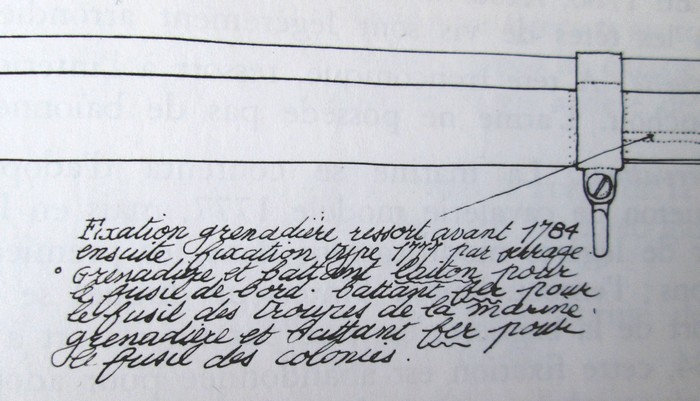 Fixation grenadière ressort avant 1784
ensuite fixation type 1777 par serrage.
° Grenadière et battant laiton pour
le fusil de bord. battant fer pour
le fusil des troupes de la marine.
grenadière et battant fer pour
le fusil des colonies.